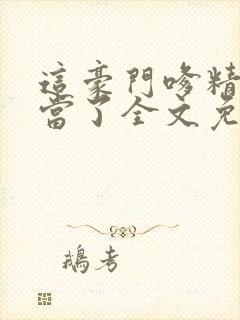 這豪門哆精
當了全文免
鵝考